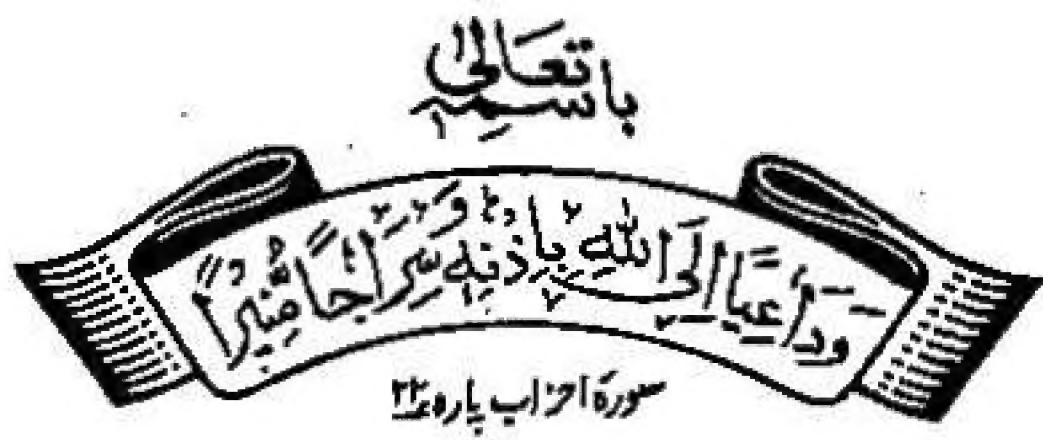 باسمہٖ تعالیٰ
وَدَاعِيًا إِلَى اللهِ بِإِذْنِهِ وَسِرَاجًا مُّنِيرًا
سورۃ احزاب پارہ ۲۲